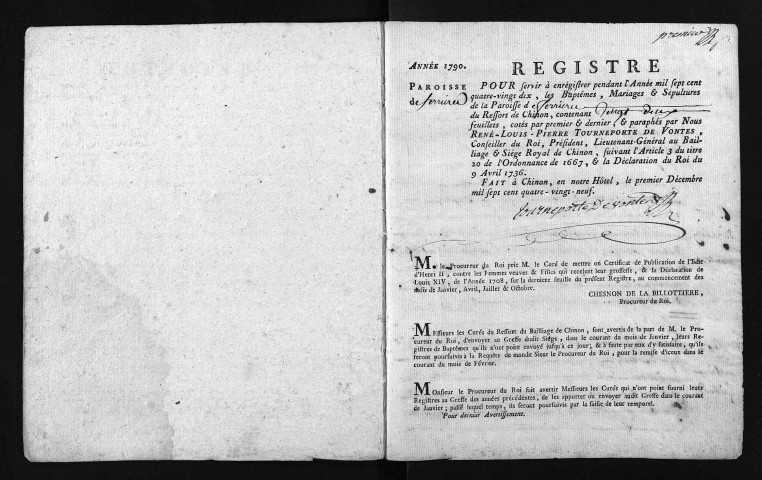 premier
ANNÉE 1790.
REGISTRE
PAROISSE
de ferrieres
POUR servir à enrégistrer pendant l'Année mil sept cent
quatre-vingt dix, les Baptêmes, Mariages & Sépultures
de la Paroisse de ferriere
du Ressort de Chinon, contenant vingt deux
feuillets, cotés par premier & dernier, & paraphés par Nous
RENÉ-LOUIS-PIERRE TOURNEPORTE DE VONTES,
Conseiller du Roi, Président, Lieutenant-Général au Bail-
liage & Siége Royal de Chinon, suivant l'Article 3 du titre
20 de l'Ordonnance de 1667, & la Déclaration du Roi du
9 Avril 1736.
FAIT à Chinon, en notre Hôtel, le premier Décembre
mil sept cent quatre-vingt-neuf.
tourneporte De vontes
M. le Procureur du Roi prie M. le Curé de mettre un Certificat de Publication de l'Edit
d'Henri II, contre les Femmes veuves & Filles qui recelent leur grossesse, & la Déclaration de
Louis XIV, de l'Année 1708, sur la derniere feuille du présent Registre, au commencement des
mois de Janvier, Avril, Juillet & Octobre.
CHESNON DE LA BILLOTTIERE,
Procureur du Roi.
MEssieurs les Curés du Ressort du Bailliage de Chinon, sont avertis de la part de M. le Pro-
cureur du Roi, d'envoyer au Greffe dudit Siége, dans le courant du mois de Janvier, leurs Re-
gistres de Baptêmes qu'ils n'ont point envoyé jusqu'à ce jour; & à faute par eux d'y satisfaire, qu'ils
seront poursuivis à la Requête de mondit Sieur le Procureur du Roi, pour la remise d'iceux dans le
courant du mois de Février.
MOnsieur le Procureur du Roi fait avertir Messieurs les Curés qui n'ont point fourni leurs
Registres au Greffe des années précédentes, de les apporter ou envoyer audit Greffe dans le courant
de Janvier; passé lequel temps, ils seront poursuivis par la saisie de leur temporel.
Pour dernier Avertissement.